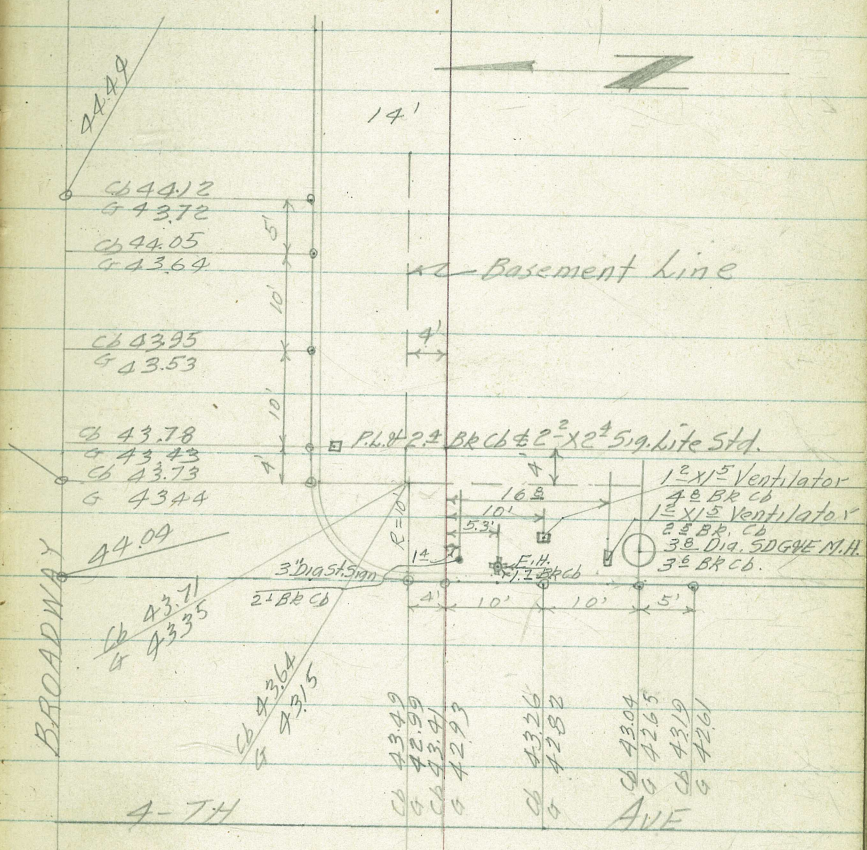 44.44
14'
Cb 44.12
G 43.72
5'
Cb 44.05
G 43.64
Basement Line
10'
4'
Cb 43.95
G 43.53
10'
Cb 43.78
G 43.43
P.L. & 2.4 Br Cb ₵ 2² x 2⁴ Sig. Lite Std.
4'
Cb 43.73
G 43.44
4'
1² x 1⁵ Ventilator
4⁸ Bk Cb
16⁸
10'
1² x 1⁵ Ventilator
2⁵ Bk. Cb
5.3'
R=10'
3⁸ Dia. SDG&E M.H.
3⁶ Bk Cb.
44.04
1⁴
F.H.
1.2 Bk Cb
3" Dia St. Sign
2⁴ Bk Cb
4'
10'
10'
5'
Cb 43.71
G 43.35
Cb 43.64
G 43.15
BROADWAY
Cb 43.49
G 42.99
Cb 43.41
G 42.93
Cb 43.26
G 42.82
Cb 43.04
G 42.65
Cb 43.19
G 42.61
4-TH AVE